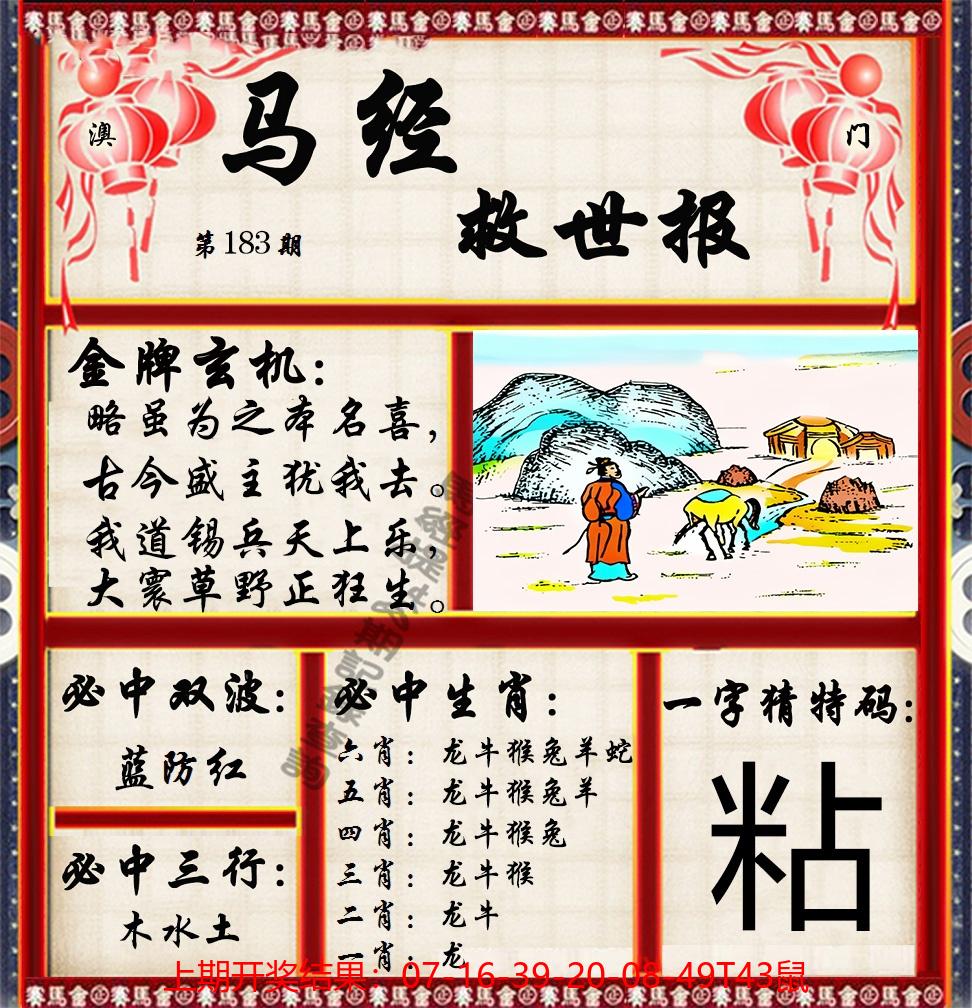 澳
门
马经
救世报
第183期
金牌玄机：
略虽为之本名喜，
古今盛主犹我去。
我道锡兵天上乐，
大寰草野正狂生。
必中双波：
蓝防红
必中三行：
木水土
必中生肖：
六肖：龙牛猴兔羊蛇
五肖：龙牛猴兔羊
四肖：龙牛猴兔
三肖：龙牛猴
二肖：龙牛
一肖：龙
一字猜特码：
粘
上期开奖结果：07-16-39-20-08-49T43鼠